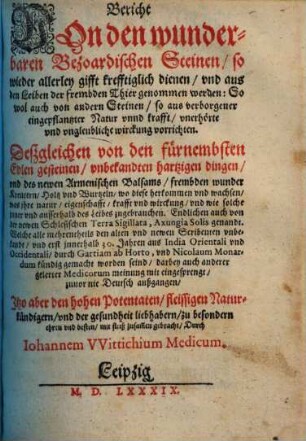 Bericht
VOn den wunder-
baren Bezoardischen Steinen / so
wieder allerley gifft krefftiglich dienen / vnd aus
den Leiben der frembden Thier genommen werden: So
wol auch von andern Steinen / so aus verborgener
eingepflantzter Natur vnnd krafft / vnerhörte
vnd vngleubliche wirckung vorrichten.
Deßgleichen von den fürnembsten
Edlen gesteinen / vnbekandten hartzigen dingen /
vnd des newen Armenischen Balsams / frembden wunder
Kreutern / Holtz vnd Wurtzeln / wo diese herkommen vnd wachsen /
was ihre natur / eigenschafft / krafft vnd wirckung / vnd wie solche
inner vnd ausserhalb des leibes zugebrauchen. Endlichen auch von
der newen Schlesischen Terra Sigillata, Axungia Solis genandt.
Welche alle mehrentheils den alten vnd newen Scribenten vnbe-
kandt / vnd erst innerhalb 30. Jahren aus India Orientali vnd
Occidentali / durch Gartiam ab Horto, vnd Nicolaum Monar-
dum kündig gemacht worden seind / darbey auch anderer
gelerter Medicorum meinung mit eingesprengt /
zuuor nie Deutsch außgangen /
Itzo aber den hohen Potentaten / fleissigen Natur-
kündigern / vnd der gesundheit liebhabern / zu besondern
ehren vnd besten / mit fleiß zusammen gebracht / Durch
Iohannem VVittichium Medicum.
Leipzig
M. D. LXXXIX.